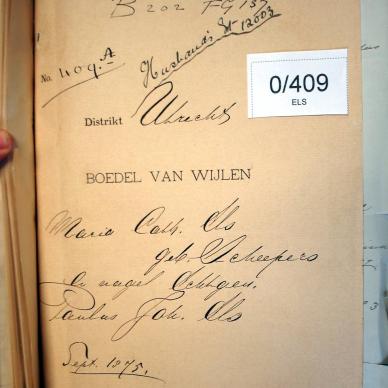 B 202 FG 137
Husband's Est 12603
No. 409. A
0/409
ELS
Distrikt Utrecht
BOEDEL VAN WIJLEN
Maria Cath. Els
geb. Scheepers
en nagel. Echtgen.
Paulus Joh. Els
Sept. 1875.